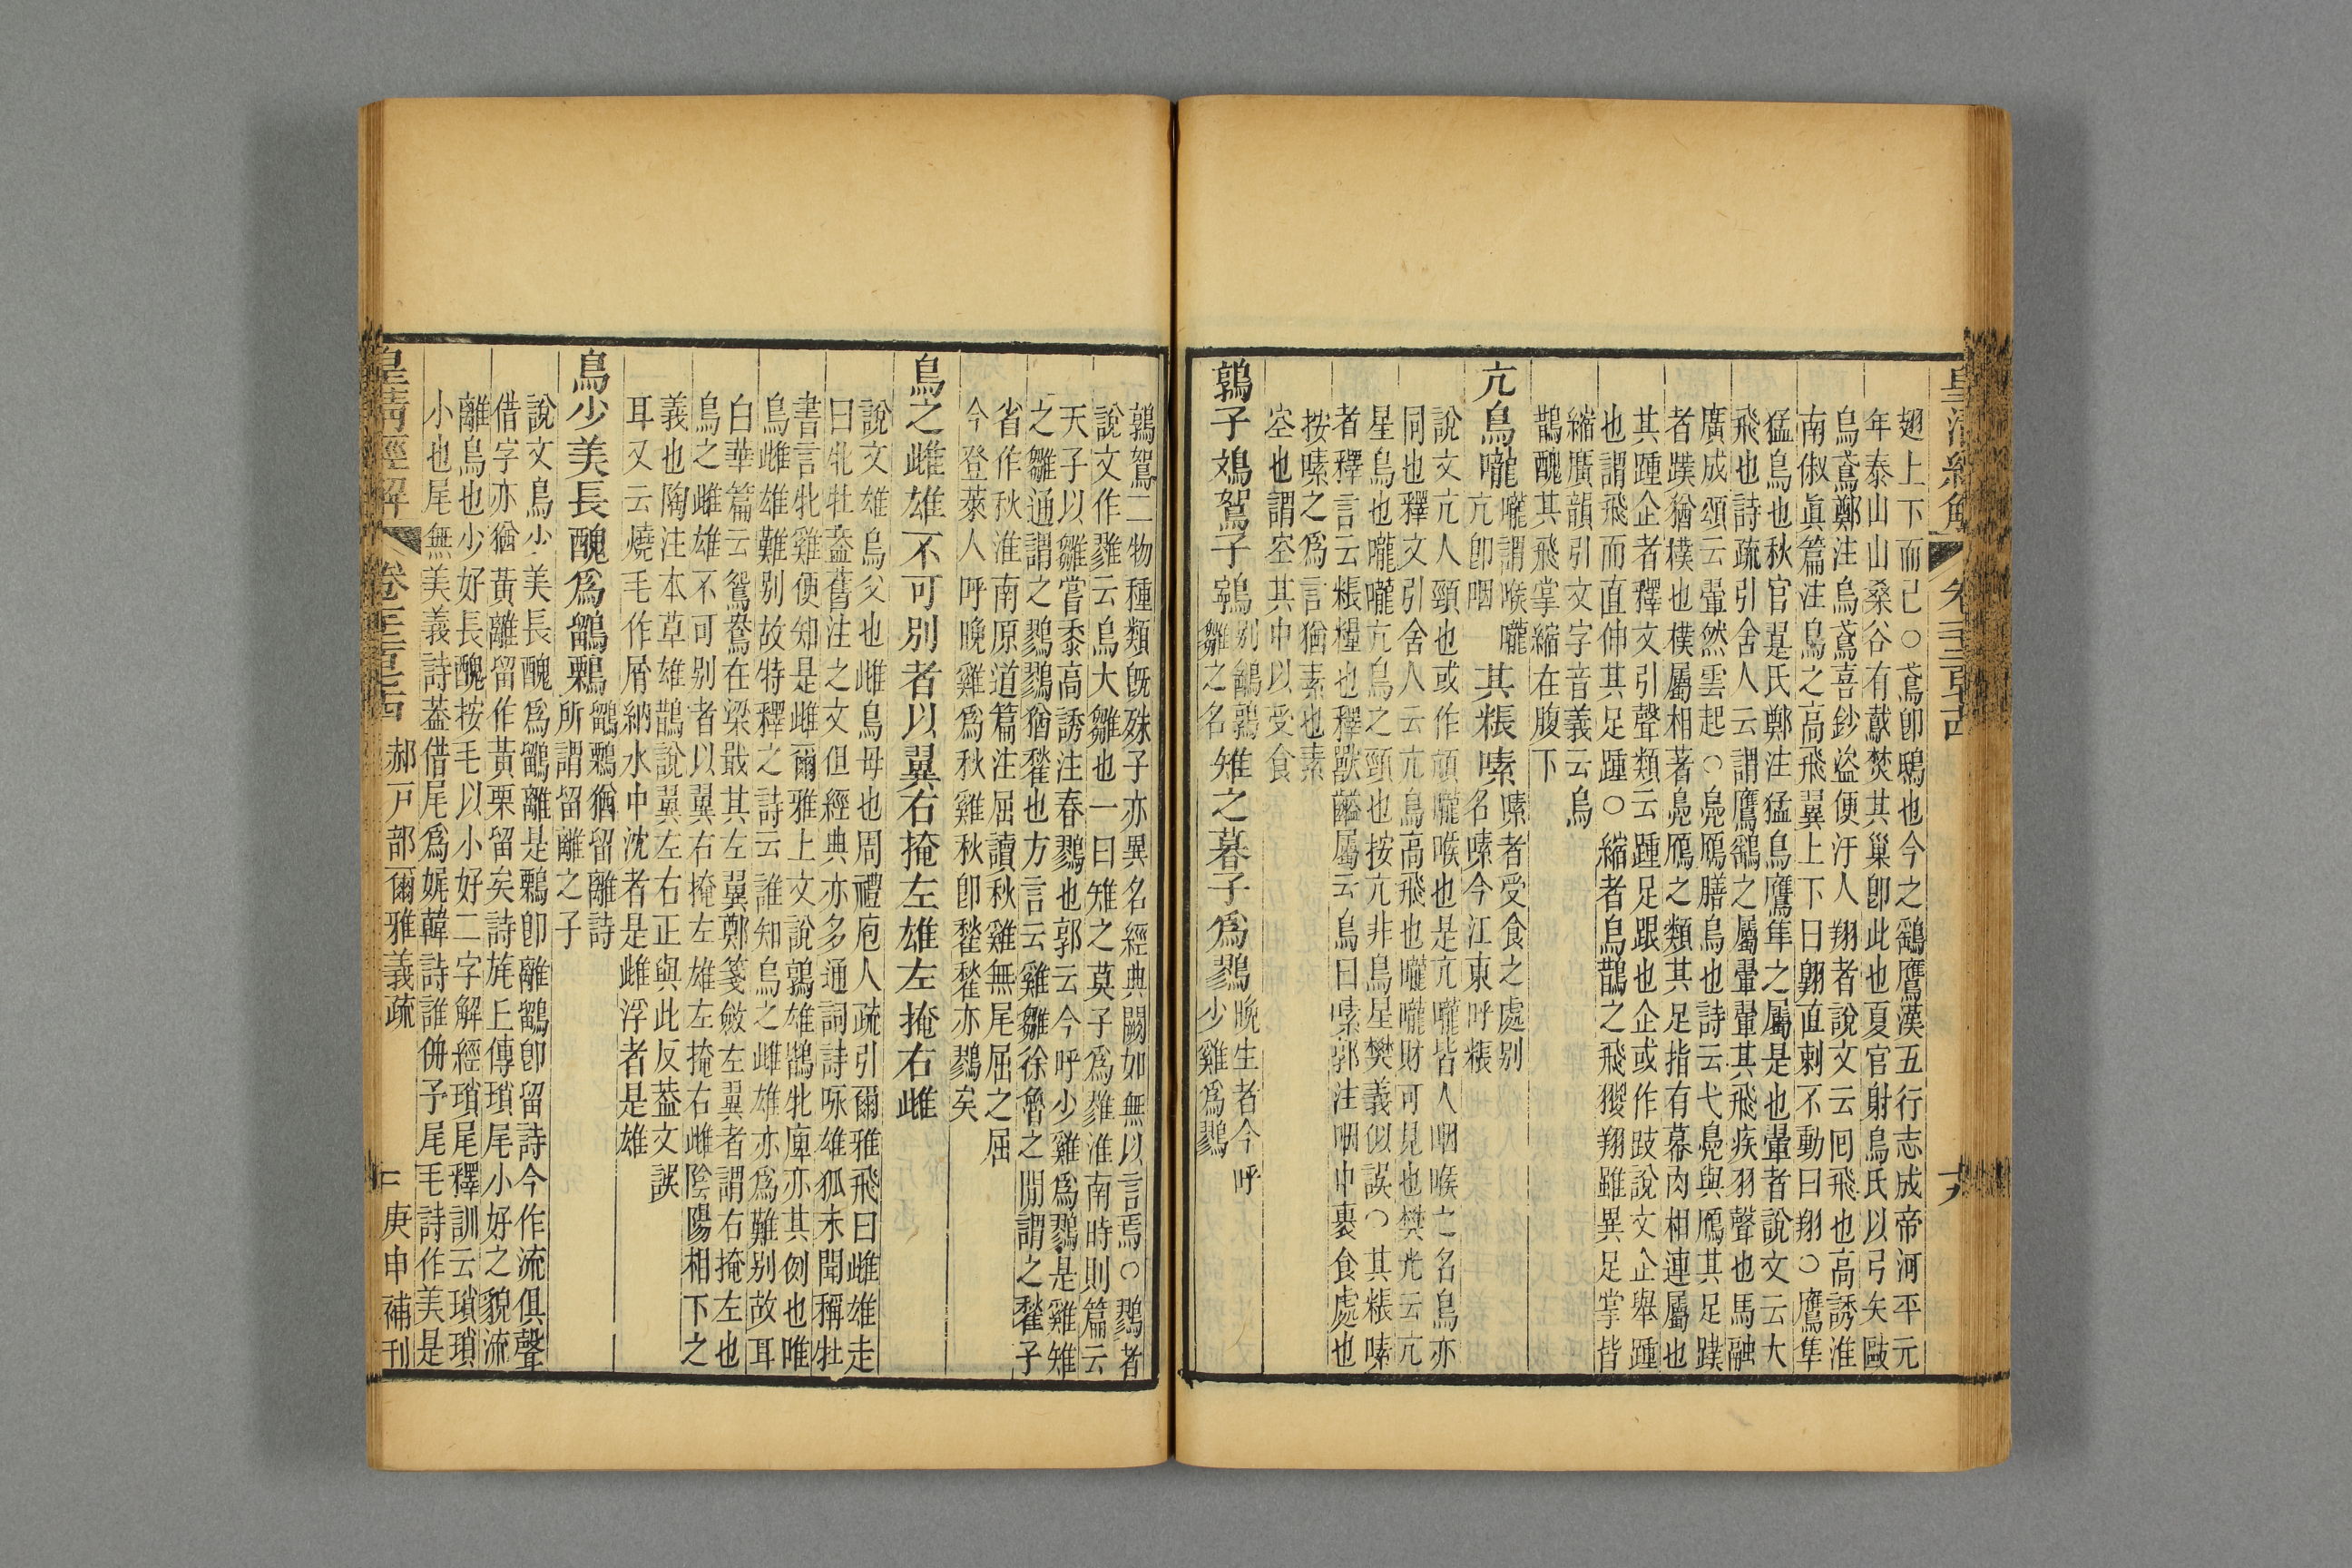 皇清經解
翅上下而已○鳶卽鴟也今之鷂鷹漢五行志成帝河平元
年泰山山桑谷有䳒焚其巢卽此也夏官射鳥氏以弓矢毆
烏鳶鄭注烏鳶喜鈔盜便汙人翔者說文云回飛也高誘淮
南俶眞篇注鳥之高飛翼上下曰翺直刺不動曰翔○鷹隼
猛鳥也秋官翨氏鄭注猛鳥鷹隼之屬是也翬者說文云大
飛也詩疏引舍人云謂鷹鷂之屬翬翬其飛疾羽聲也馬融
廣成頌云翬然雲起○鳧鴈膳鳥也詩云弋鳧與鴈其足蹼
者蹼猶樸也樸屬相著鳧鴈之類其足指有幕肉相連屬也
其踵企者釋文引聲類云踵足跟也企或作跂說文企舉踵
也謂飛而直伸其足踵○縮者烏鵲之飛猣翔雖異足掌皆
縮廣韻引文字音義云烏
鵲醜其飛掌縮在腹下
亢鳥嚨嚨謂喉嚨亢卽咽其粻嗉嗉者受食之處别名嗉今江東呼粻
說文亢人頸也或作頏嚨喉也是亢嚨皆人咽喉之名鳥亦
同也釋文引舍人云亢鳥高飛也嚨嚨財可見也樊光云亢
星鳥也嚨嚨亢鳥之頸也按亢非鳥星樊義似誤○其粻嗉
者釋言云粻糧也釋獸齸屬云鳥曰嗉郭注咽中裹食處也
按嗉之爲言猶素也素
空也謂空其中以受食
鶉子鳼鴽子鸋别鷭鶉雛之名雉之暮子爲鷚晚生者今呼少雞爲鷚
鶉鴽二物種類旣殊子亦異名經典闕如無以言焉○鷚者
說文作雡云鳥大雛也一曰雉之莫子爲雡淮南時則篇云
天子以雛嘗黍高誘注春鷚也郭云今呼少雞爲鷚是雞雉
之雛通謂之鷚鷚猶䨂也方言云雞雛徐魯之閒謂之䨂子
省作秋淮南原道篇注屈讀秋雞無尾屈之屈
今登萊人呼晚雞爲秋雞秋卽䨂䨂亦鷚矣
鳥之雌雄不可別者以翼右掩左雄左掩右雌
說文雄鳥父也雌鳥母也周禮庖人疏引爾雅飛曰雌雄走
曰牝牡葢舊注之文但經典亦多通詞詩咏雄狐未聞稱牡
書言牝雞便知是雌爾雅上文說鶉雄鵲牝庳亦其例也唯
鳥雌雄難别故特釋之詩云誰知烏之雌雄亦爲難别故耳
白華篇云鴛鴦在梁戢其左翼鄭箋斂左翼者謂右掩左也
鳥之雌雄不可别者以翼右掩左雄左掩右雌陰陽相下之
義也陶注本草雄鵲說翼左右正與此反葢文誤
耳又云燒毛作屑納水中沈者是雌浮者是雄
鳥少美長醜爲鶹鷅鶹鷅猶留離詩所謂留離之子
說文鳥少美長醜爲鶹離是鷅卽離鶹卽留詩今作流俱聲
借字亦猶黃離留作黃栗留矣詩旄丘傳瑣尾小好之貌流
離鳥也少好長醜按毛以小好二字解經瑣尾釋訓云瑣瑣
小也尾無美義詩葢借尾爲娓韓詩誰侜予尾毛詩作美是
皇淸經解 郝戸部爾雅義疏 庚申補刊